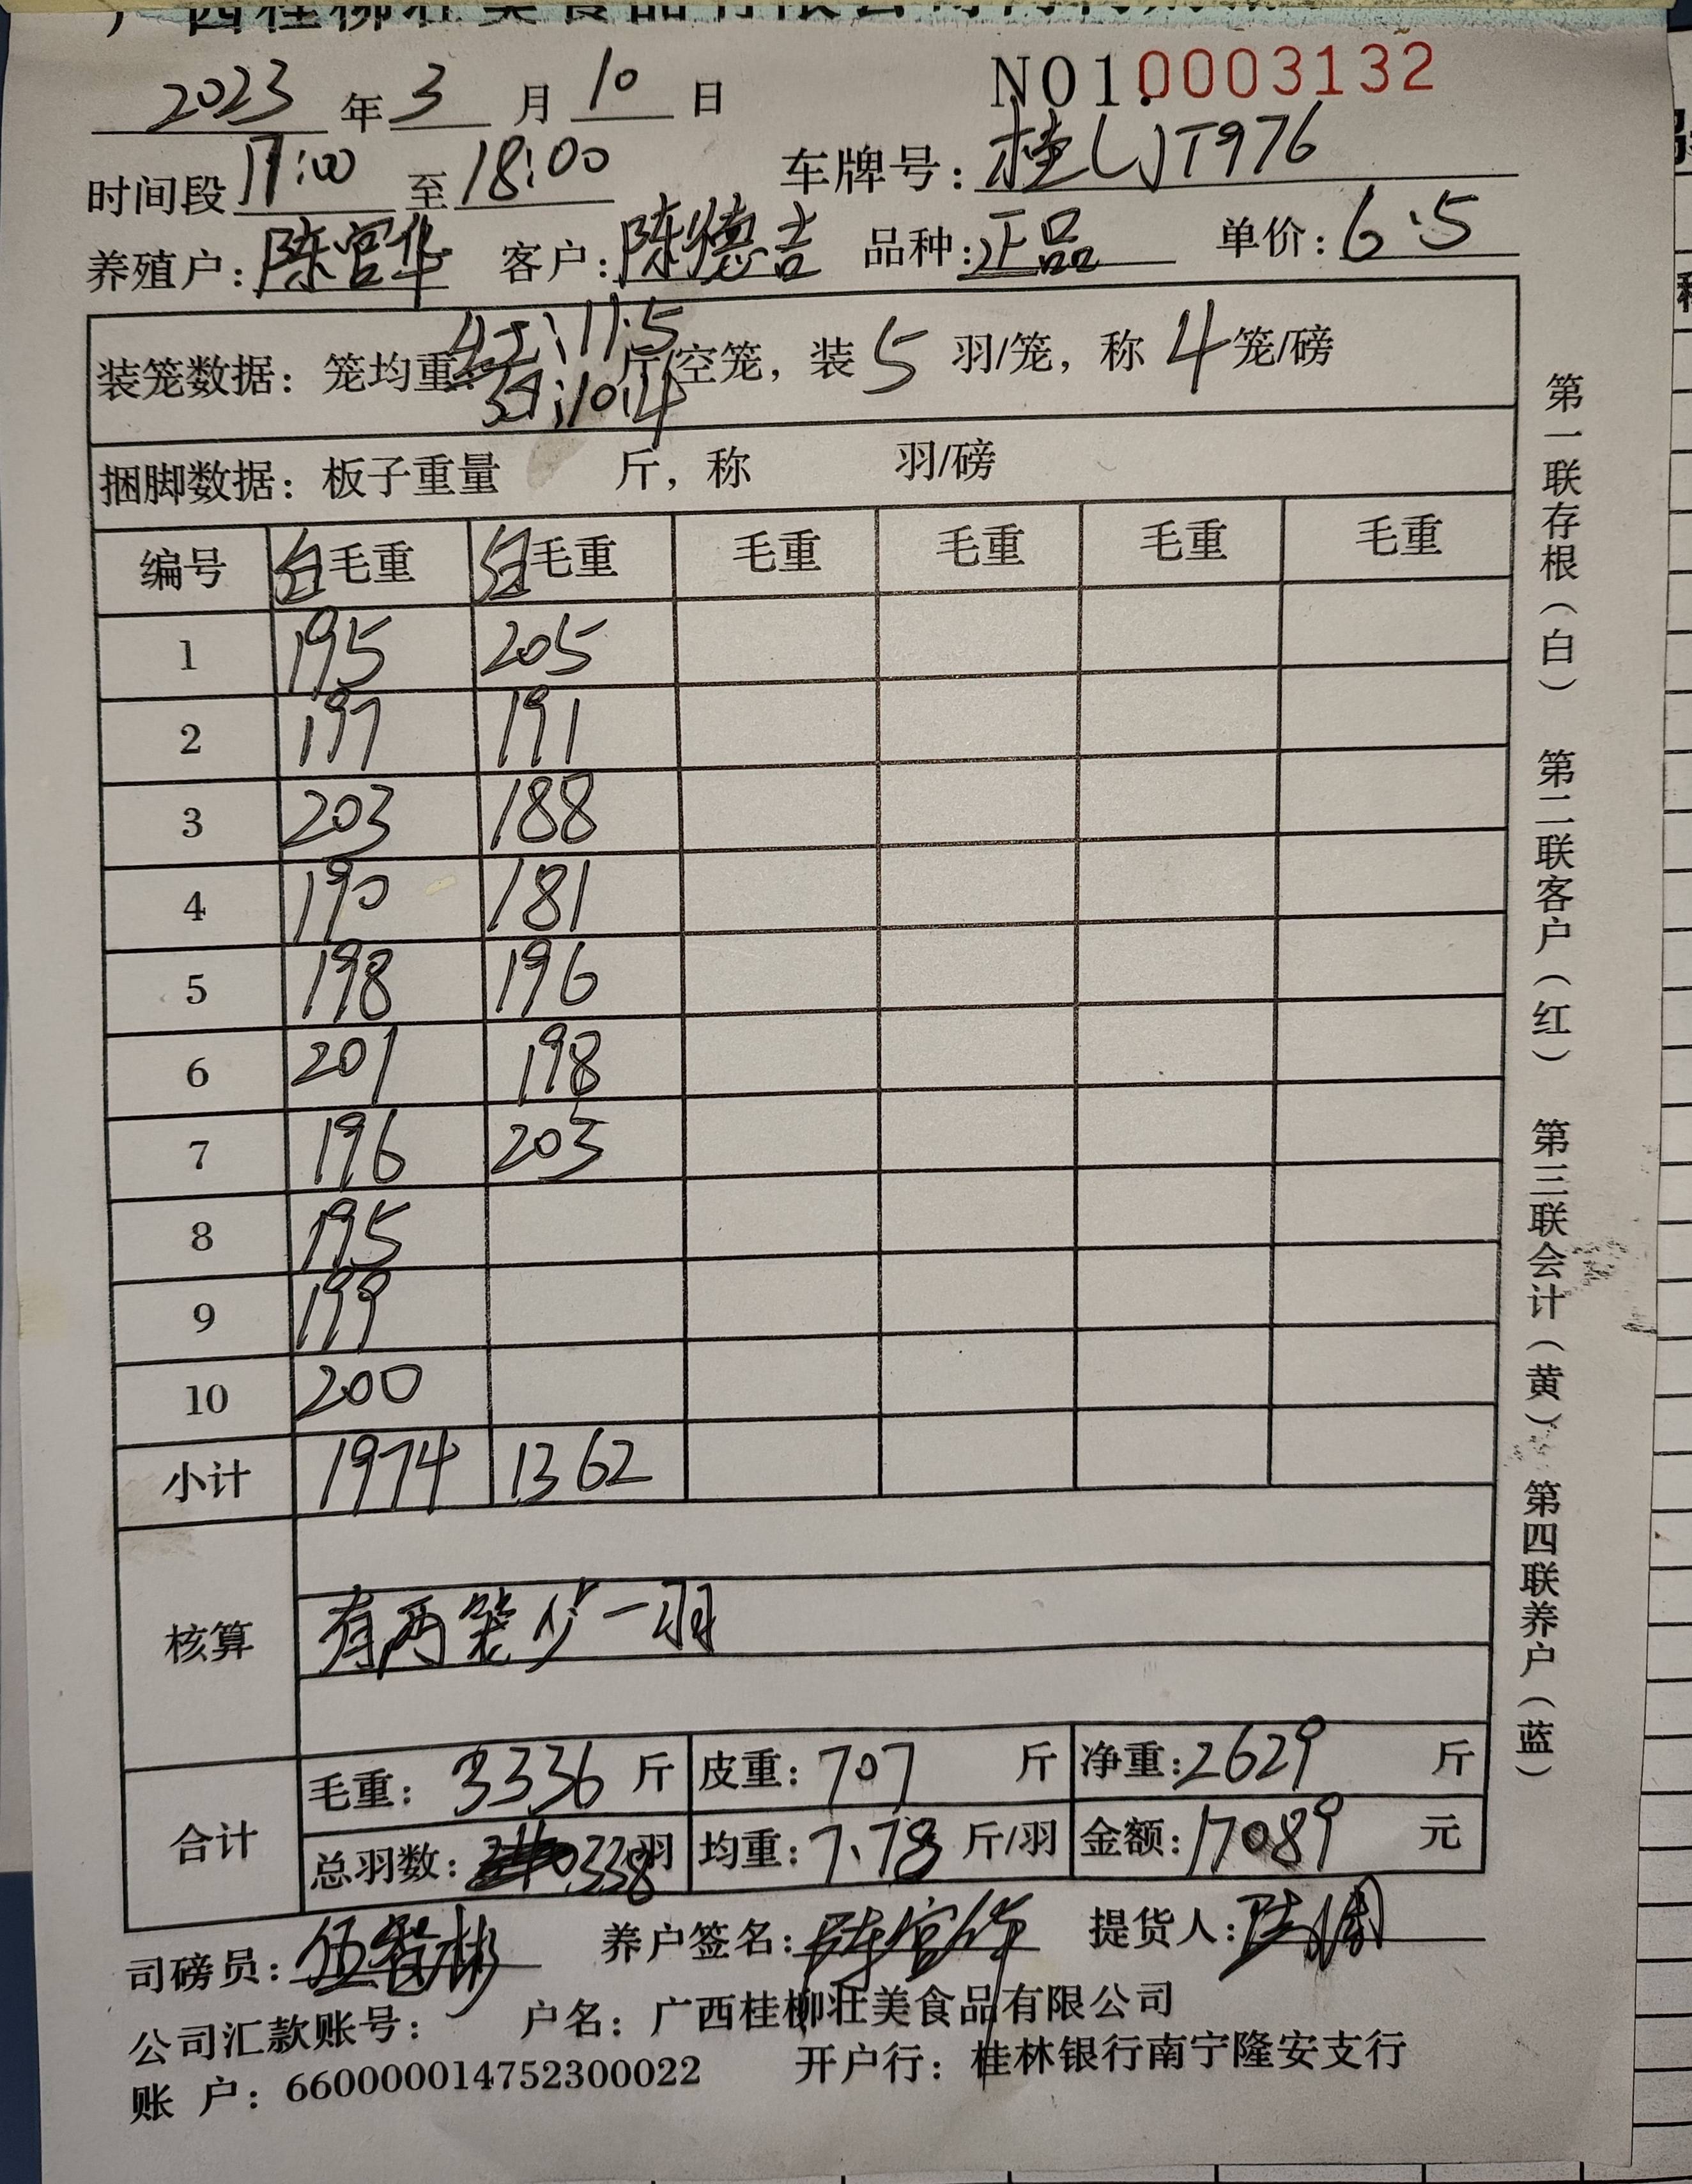 广西桂柳壮美食品有限公司
2023 年 3 月 10 日 NO1.0003132
时间段 17:00 至 18:00 车牌号: 桂LJT976
养殖户: 陈官华 客户: 陈德吉 品种: 正品 单价: 6.5
装笼数据: 笼均重: 红:11.5 斤/空笼, 装 5 羽/笼, 称 4 笼/磅
:10.4
捆脚数据: 板子重量 斤, 称 羽/磅
编号 白毛重 红毛重 毛重 毛重 毛重 毛重
1 195 205
2 197 191
3 203 188
4 190 181
5 198 196
6 201 198
7 196 203
8 195
9 199
10 200
小计 1974 1362
核算 有两笼少一羽
合计 毛重: 3336 斤 皮重: 707 斤 净重: 2629 斤
总羽数: 338 羽 均重: 7.78 斤/羽 金额: 17089 元
司磅员: 养户签名: 陈官华 提货人:
公司汇款账号: 户名: 广西桂柳壮美食品有限公司
账 户: 660000014752300022 开户行: 桂林银行南宁隆安支行
第一联存根(白) 第二联客户(红) 第三联会计(黄) 第四联养户(蓝)